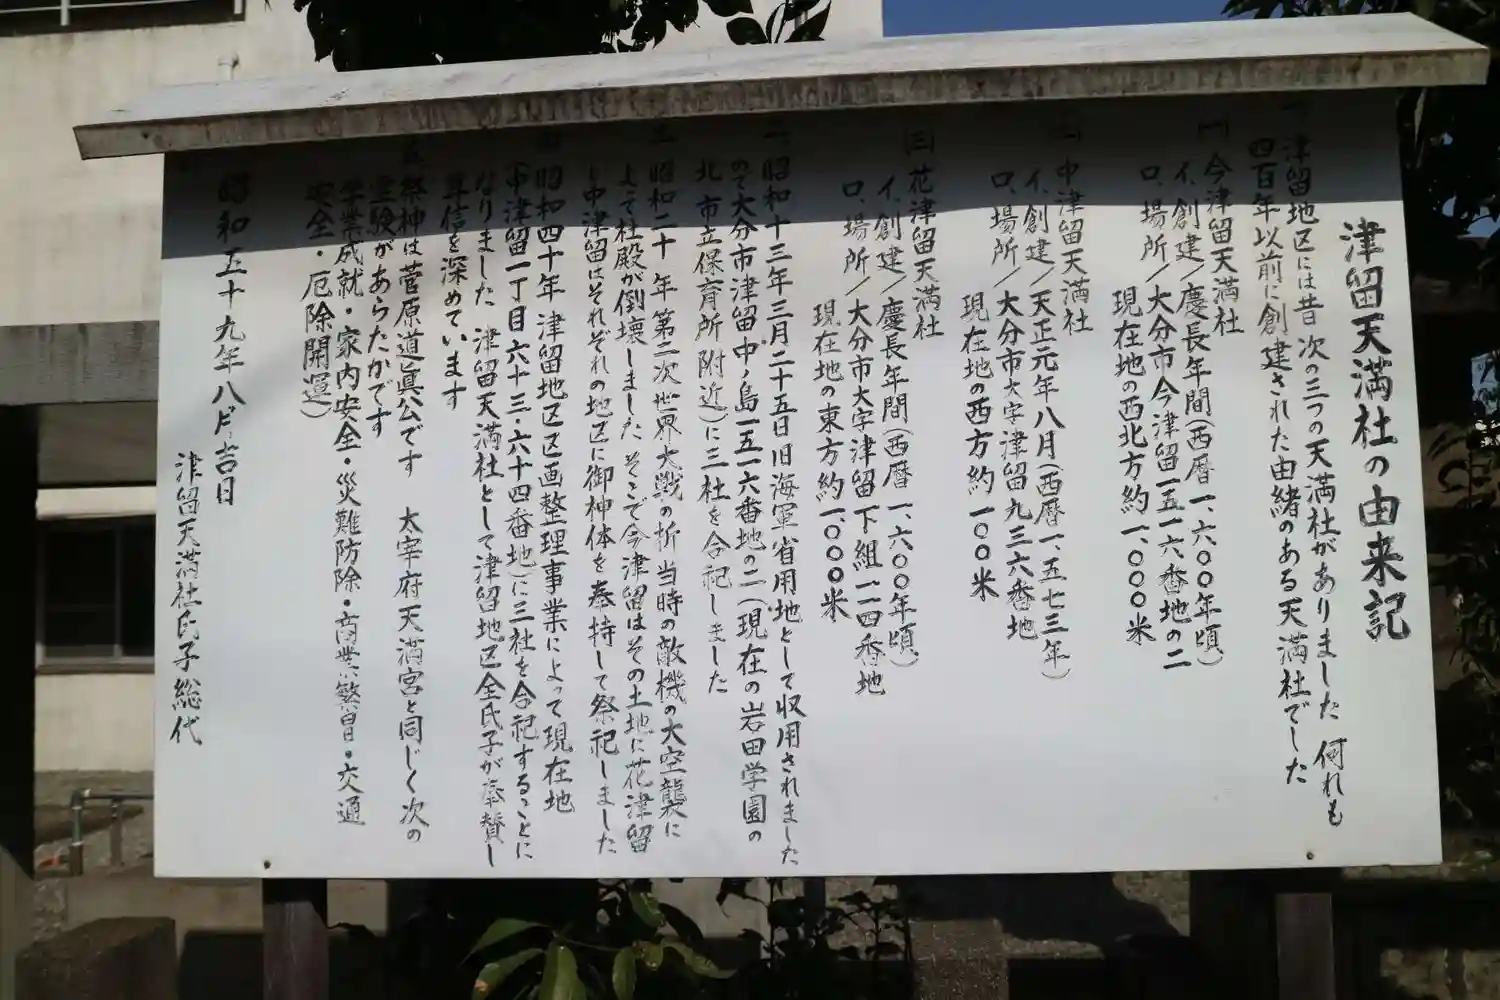 津留天満社の由来記
一 津留地区には昔 次の三つの天満社がありました 何れも
四百年以前に創建された由緒のある天満社でした
㈠ 今津留天満社
イ.創建/慶長年間(西暦一、六〇〇年頃)
ロ.場所/大分市今津留一五一六番地の二
現在地の西北方約一、〇〇〇米
㈡ 中津留天満社
イ.創建/天正元年八月(西暦一、五七三年)
ロ.場所/大分市大字津留九三六番地
現在地の西方約一〇〇米
㈢ 花津留天満社
イ.創建/慶長年間(西暦一、六〇〇年頃)
ロ.場所/大分市大字津留下組一一四番地
現在地の東方約一、〇〇〇米
二 昭和十三年三月二十五日旧海軍省用地として収用されました
ので大分市津留中ノ島一五一六番地の二(現在の岩田学園の
北 市立保育所附近)に三社を合祀しました
三 昭和二十年 第二次世界大戦の折 当時の敵機の大空襲に
よって社殿が倒壊しました そこで今津留はその土地に花津留
中津留はそれぞれの地区に御神体を奉持して祭祀しました
四 昭和四十年 津留地区区画整理事業によって現在地
(中津留一丁目六十三・六十四番地)に三社を合祀することに
なりました 津留天満社として津留地区全氏子が奉賛し
尊信を深めています
五 祭神は菅原道眞公です 太宰府天満宮と同じく次の
霊験があらたかです
(学業成就・家内安全・災難防除・商業繁昌・交通
安全・厄除開運)
昭和五十九年八月吉日
津留天満社氏子総代